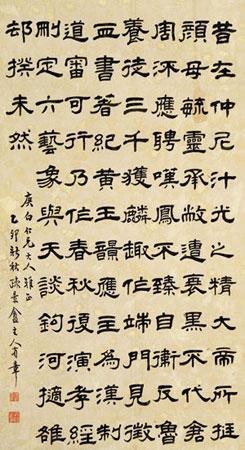 昔在仲尼汁光之精大帝所挺
顏母毓靈承敝遭衰黑不代倉
周流應聘歎鳳不臻自衛反魯
養徒三千獲麟趣作端門見徵
血書著紀黃玉韻應主為漢制
道審可行乃作春秋復演孝經
刪定六藝象與天談鉤河擿雒
卻揆未然
庚白仁兄大人雅正
乙卯新秋